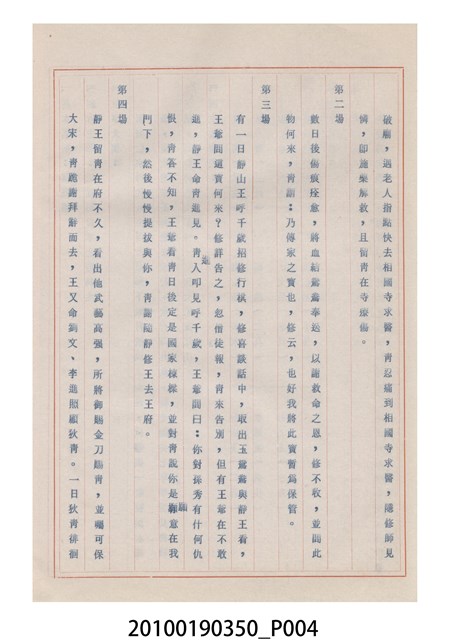 破廟，遇老人指點快去相國寺求醫，青忍痛到相國寺求醫，隱修師見
憐，即施藥解救，且留青在寺療傷。
第二場
數日後傷痕痊癒，將血結鴛鴦奉送，以謝救命之恩，修不收，並問此
物何來，青謂：乃傳家之寶也，修云，也好我將此寶暫為保管。
第三場
有一日靜山王呼千歲招修行棋，修喜談話中，取出玉鴛鴦與靜王看，
王爺問這寶何來？修詳告之，忽僧徒報，青來告別，但有王爺在不敢
進，靜王命青進見。青入叩見呼千歲，王爺問曰：你對孫秀有什何仇
進
恨，青答不知，王爺看青日後定是國家棟樑，並對青說你是願意在我
願
門下，然後慢慢提拔與你，青謝隨靜修王去王府。
第四場
靜王留青在府不久，看出他武藝高强，所將御賜金刀贈青，並囑可保
大宋，青跪謝拜辭而去，王又命劉文、李進照顧狄青。一日狄青徘徊
20100190350_P004